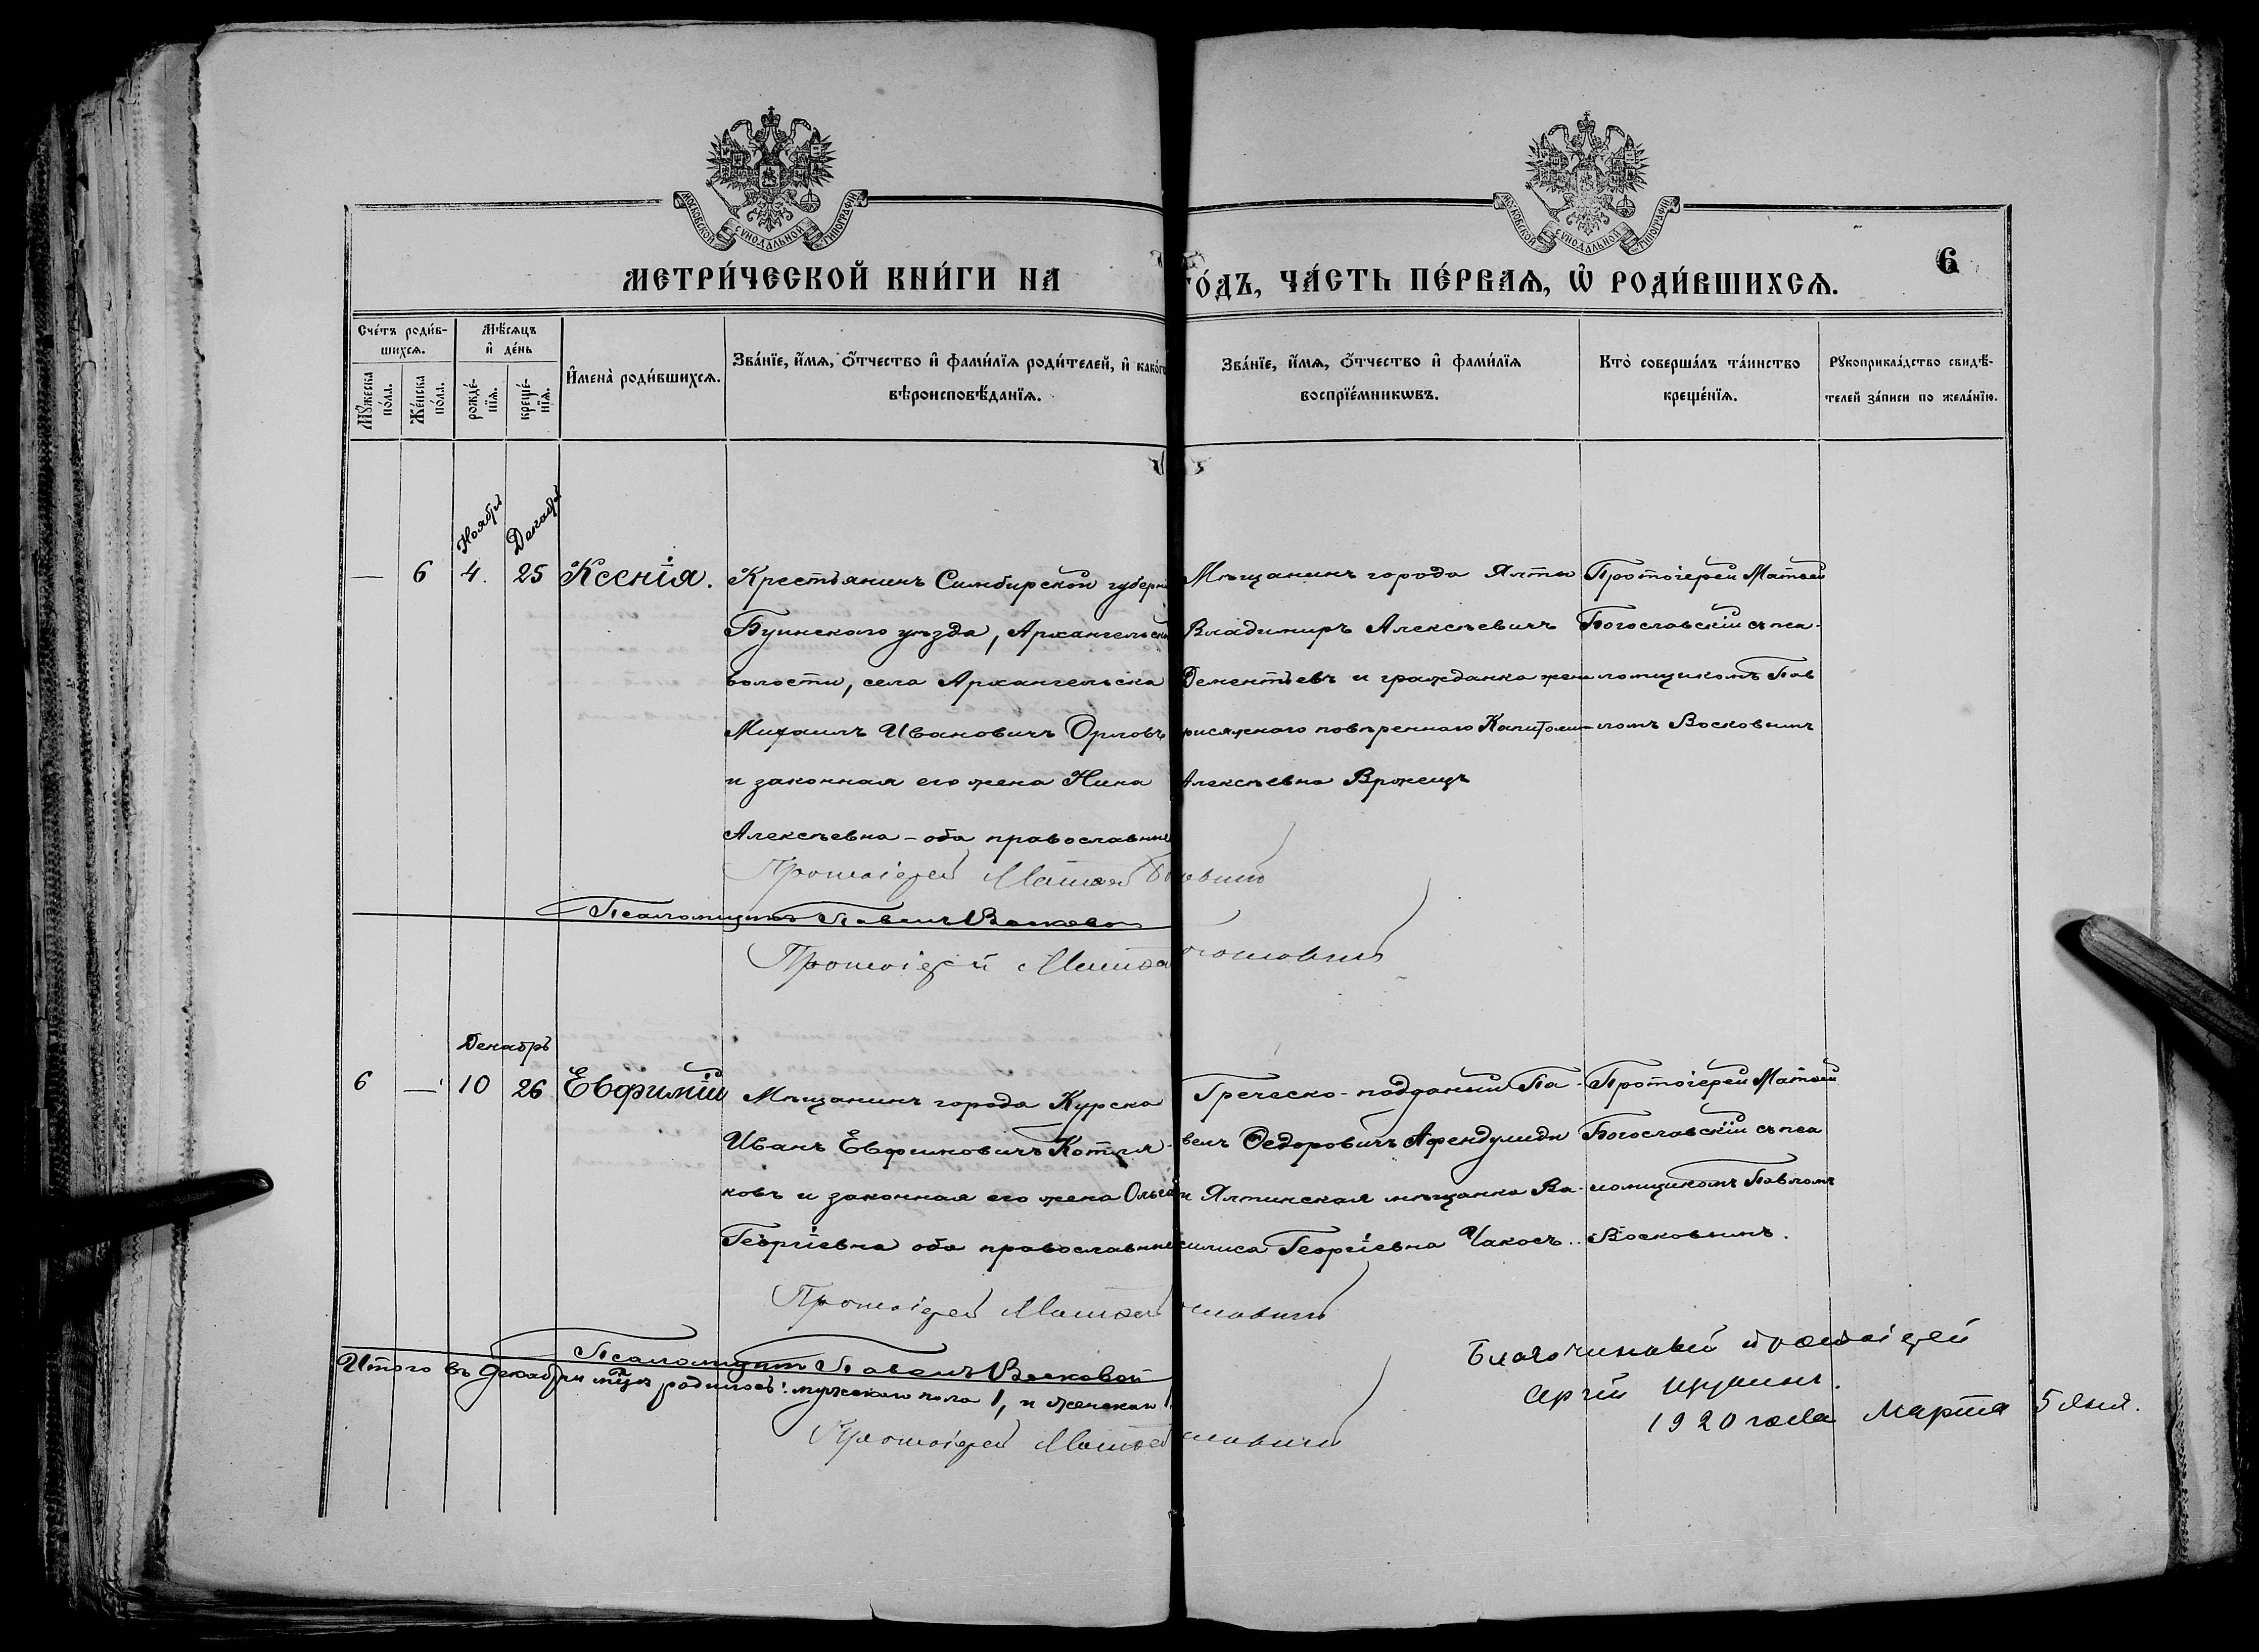 МОСКОВСКОЙ СѴНОДАЛЬНОЙ ТИПОГРАФІИ
МОСКОВСКОЙ СѴНОДАЛЬНОЙ ТИПОГРАФІИ
МЕТРИ́ЧЕСКОЙ КНИ́ГИ НА
ГО́ДЪ, ЧА́СТЬ ПЕ́РВАѦ, Ѡ҆ РОДИ́ВШИХСѦ.
6
Сче́тъ роди́в-
шихсѧ.
Мꙋ́жеска
по́ла.
Же́нска
по́ла.
Мѣ́сѧцъ
и҆ де́нь
рожде́-
нїѧ.
креще́-
нїѧ.
И҆мена̀ роди́вшихсѧ.
Зва́нїе, и҆́мѧ, ѻ҆́тчество и҆ фами́лїѧ роди́телей, и҆ како́гѡ
вѣроисповѣ́данїѧ.
Зва́нїе, и҆́мѧ, ѻ҆́тчество и҆ фами́лїѧ
воспрїе́мникѡвъ.
Кто̀ соверша́лъ та́инство
креще́нїѧ.
Рꙋкоприкла́дство свидѣ́-
телей за́писи по жела́нїю.
Ноября
Декабря
— 6 4. 25 Ксенія.
Крестьянинъ Симбирской губерн
Буинскаго уѣзда, Архангельской
волости, села Архангельска
Михаилъ Ивановичъ Орловъ
и законная его жена Нина
Алексѣевна – оба православные
Мѣщанинъ города Ялты
Владимиръ Алексѣевичъ
Дементьевъ и гражданка жена
присяжнаго повѣреннаго Капитоли-
Алексѣевна Вржещъ
Протоіерей Матѳей
Богославскій съ пса-
ломщикомъ Пав
ломъ Восковымъ
Протоіерей Матѳей
Псаломщикъ Павелъ Восковой
Протоіерей Матѳей Богословскій
Декабрь
6 — 10 26 Евфимій
Мѣщанинъ города Курска
Иванъ Евфимовичъ Котля-
ковъ и законная его жена Ольга
Георгіевна оба православные
Греческо-подданый Па-
велъ Ѳедоровичъ Афендулиди
и Ялтинская мѣщанка Ва-
силиса Георгіевна Чакосъ.
Протоіерей Матѳей
Богославскій съ пса
ломщикомъ Павломъ
Восковымъ.
Протоіерей Матѳей
Псаломщикъ Павелъ Восковой
Итого въ Декабрѣ м‑цѣ родилось: мужскаго пола 1, и женскаго 1.
Протоіерей Матѳей
Благочинный протоіерей
Сергій Щукинъ.
1920 года Марта 5 дня.